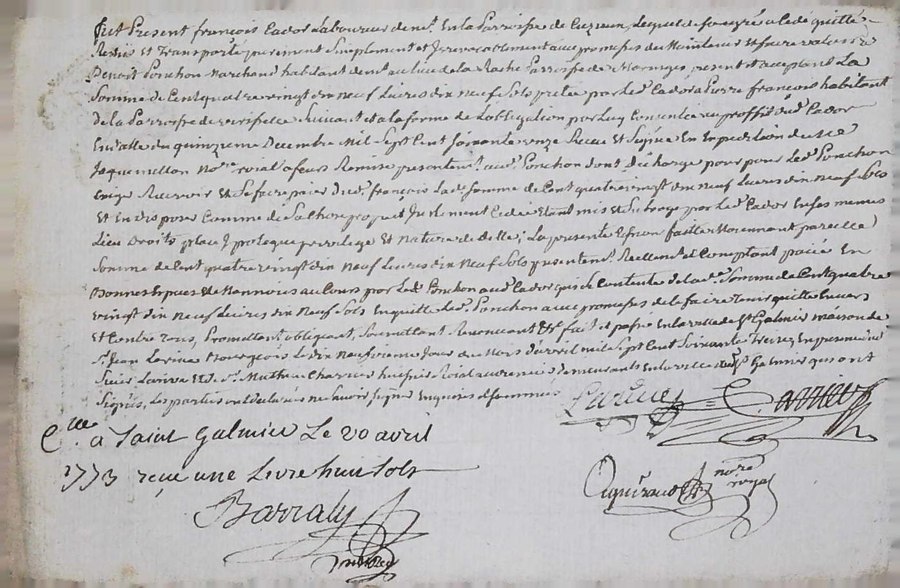 fut Present françois Cador Laboureur dem.t En la Parroisse de Cuzieu, Lequel de son gré a Cedé quitté
Remis et Transporté purement Simplement et Irrevocablement avec promesses de Maintenir et faire valoir à
Benoit Ponchon Marchand habitant dem.t au lieu de la Roche Parroisse de present et acceptant La
Somme de Cent quatre vingt dix neuf Livres dix neuf Sols pretée par Led. Cador a Pierre françois habitant
de la Parroisse de Suivant et a la forme de Lobligation par Luy Consentie au proffit dud. Cador
En datte du quinzieme Decembre Mil Sept Cent Soixante onze Recue et Signée En Expedition de M.e
Jaquemetton No.re roial a feurs Remise presentem.t aud. Ponchon dont decharge pour par Led. Ponchon
Exiger Recevoir et Se faire païer Dud. françois Lad. Somme de Cent quatre vingt dix Neuf Livres dix neuf Sols
Et En disposer Comme de Sa Chose propre et Justement Cedée Etant mis et Subrogé par Led. Cador En ses memes
Lieu Droits place hypoteque privilege Et Nature de dette; La presente Cession faitte Moiennant pareille
Somme de Cent quatre vingt dix Neuf Livres dix Neuf Sols presentem.t Reellem.t et Comptant païée En
Bonnes Especes de Monnoies au Cours par Led. Ponchon aud. Cador qui Se Contente de lad. Somme de Cent quatre
vingt dix Neuf Livres dix Neuf Sols En quitte Led. Ponchon avec promesses de le faire Tenir quitte Envers
Et Contre Tous, Promettant, obligeant, Soumettant, Renonceant &.a fait et passé En la ville de S.t Galmier maison de
S.r Jean Larive Bourgeois Le dix Neufvieme Jour du Mois d'avril Mil Sept Cent Soixante Treize, En presence du
Sieur Larive Et de S.r Mathieu Charrier huissier Roial demeurants En la ville dud. S.t Galmier qui ont
Signés, Les parties ont declarées ne Savoir Signer Enquises et Sommées
Larive Carrier
C.lle à Saint Galmier Le 20 avril
1773 reçu une Livre huit Sols
Barraly
nore
royal